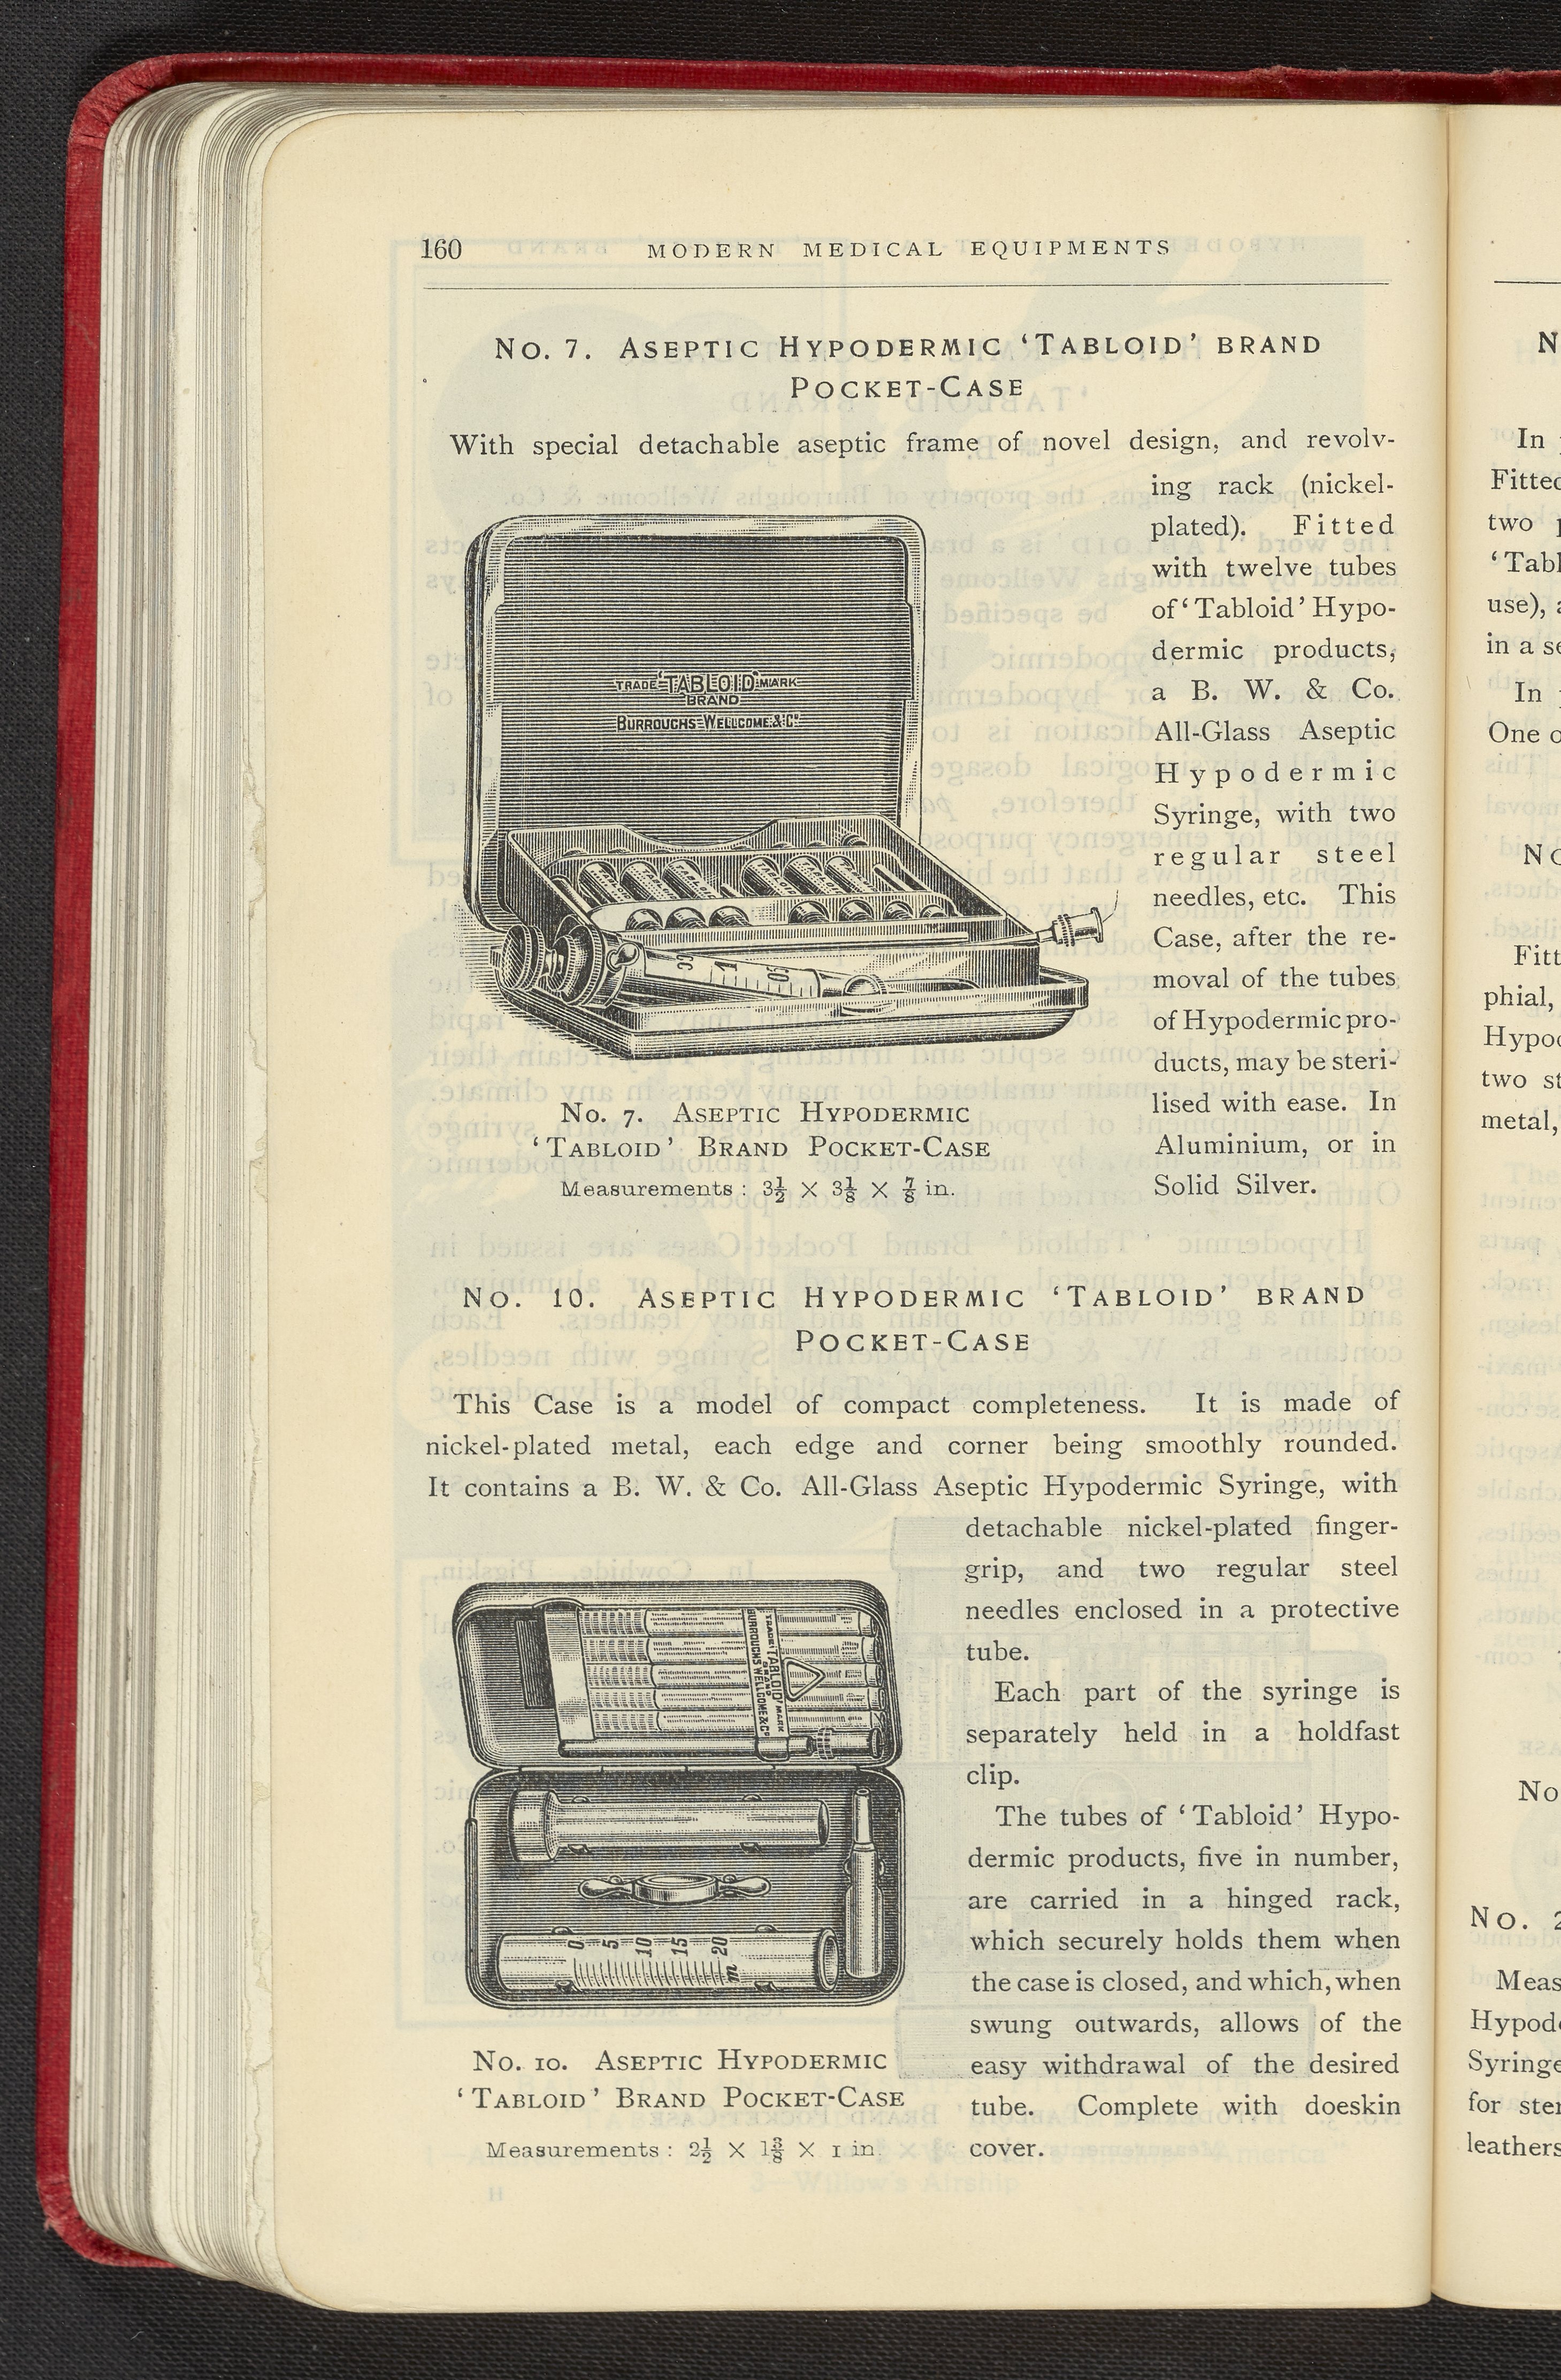 160 MODERN MEDICAL EQUIPMENTS
No. 7. Aseptic Hypodermic ‘Tabloid’ brand
Pocket-Case
With special detachable aseptic frame of novel design, and revolv-
ing rack (nickel-
plated). Fitted
with twelve tubes
of ‘Tabloid’ Hypo-
dermic products,
a B. W. & Co.
All-Glass Aseptic
Hypodermic
Syringe, with two
regular steel
needles, etc. This
Case, after the re-
moval of the tubes
of Hypodermic pro-
ducts, may be steri-
lised with ease. In
Aluminium, or in
Solid Silver.
TRADE ‘TABLOID’ MARK
BRAND
BURROUGHS WELLCOME & Co.
No. 7. Aseptic Hypodermic
‘Tabloid’ Brand Pocket-Case
Measurements : 3½ × 3⅛ × ⅞ in.
No. 10. Aseptic Hypodermic ‘Tabloid’ brand
Pocket-Case
This Case is a model of compact completeness. It is made of
nickel-plated metal, each edge and corner being smoothly rounded.
It contains a B. W. & Co. All-Glass Aseptic Hypodermic Syringe, with
detachable nickel-plated finger-
grip, and two regular steel
needles enclosed in a protective
tube.
Each part of the syringe is
separately held in a holdfast
clip.
The tubes of ‘Tabloid’ Hypo-
dermic products, five in number,
are carried in a hinged rack,
which securely holds them when
the case is closed, and which, when
swung outwards, allows of the
easy withdrawal of the desired
tube. Complete with doeskin
cover.
TRADE ‘TABLOID’ MARK
BRAND
BURROUGHS WELLCOME & Co.
0 5 10 15 20
m
No. 10. Aseptic Hypodermic
‘Tabloid’ Brand Pocket-Case
Measurements : 2½ × 1⅜ × 1 in.
In
Fitted
two
‘Tabl
use),
in a
In
One
No
Fitt
phial,
Hypo
two st
metal,
No
No. 2
Meas
Hypod
Syringe
for ster
leathers